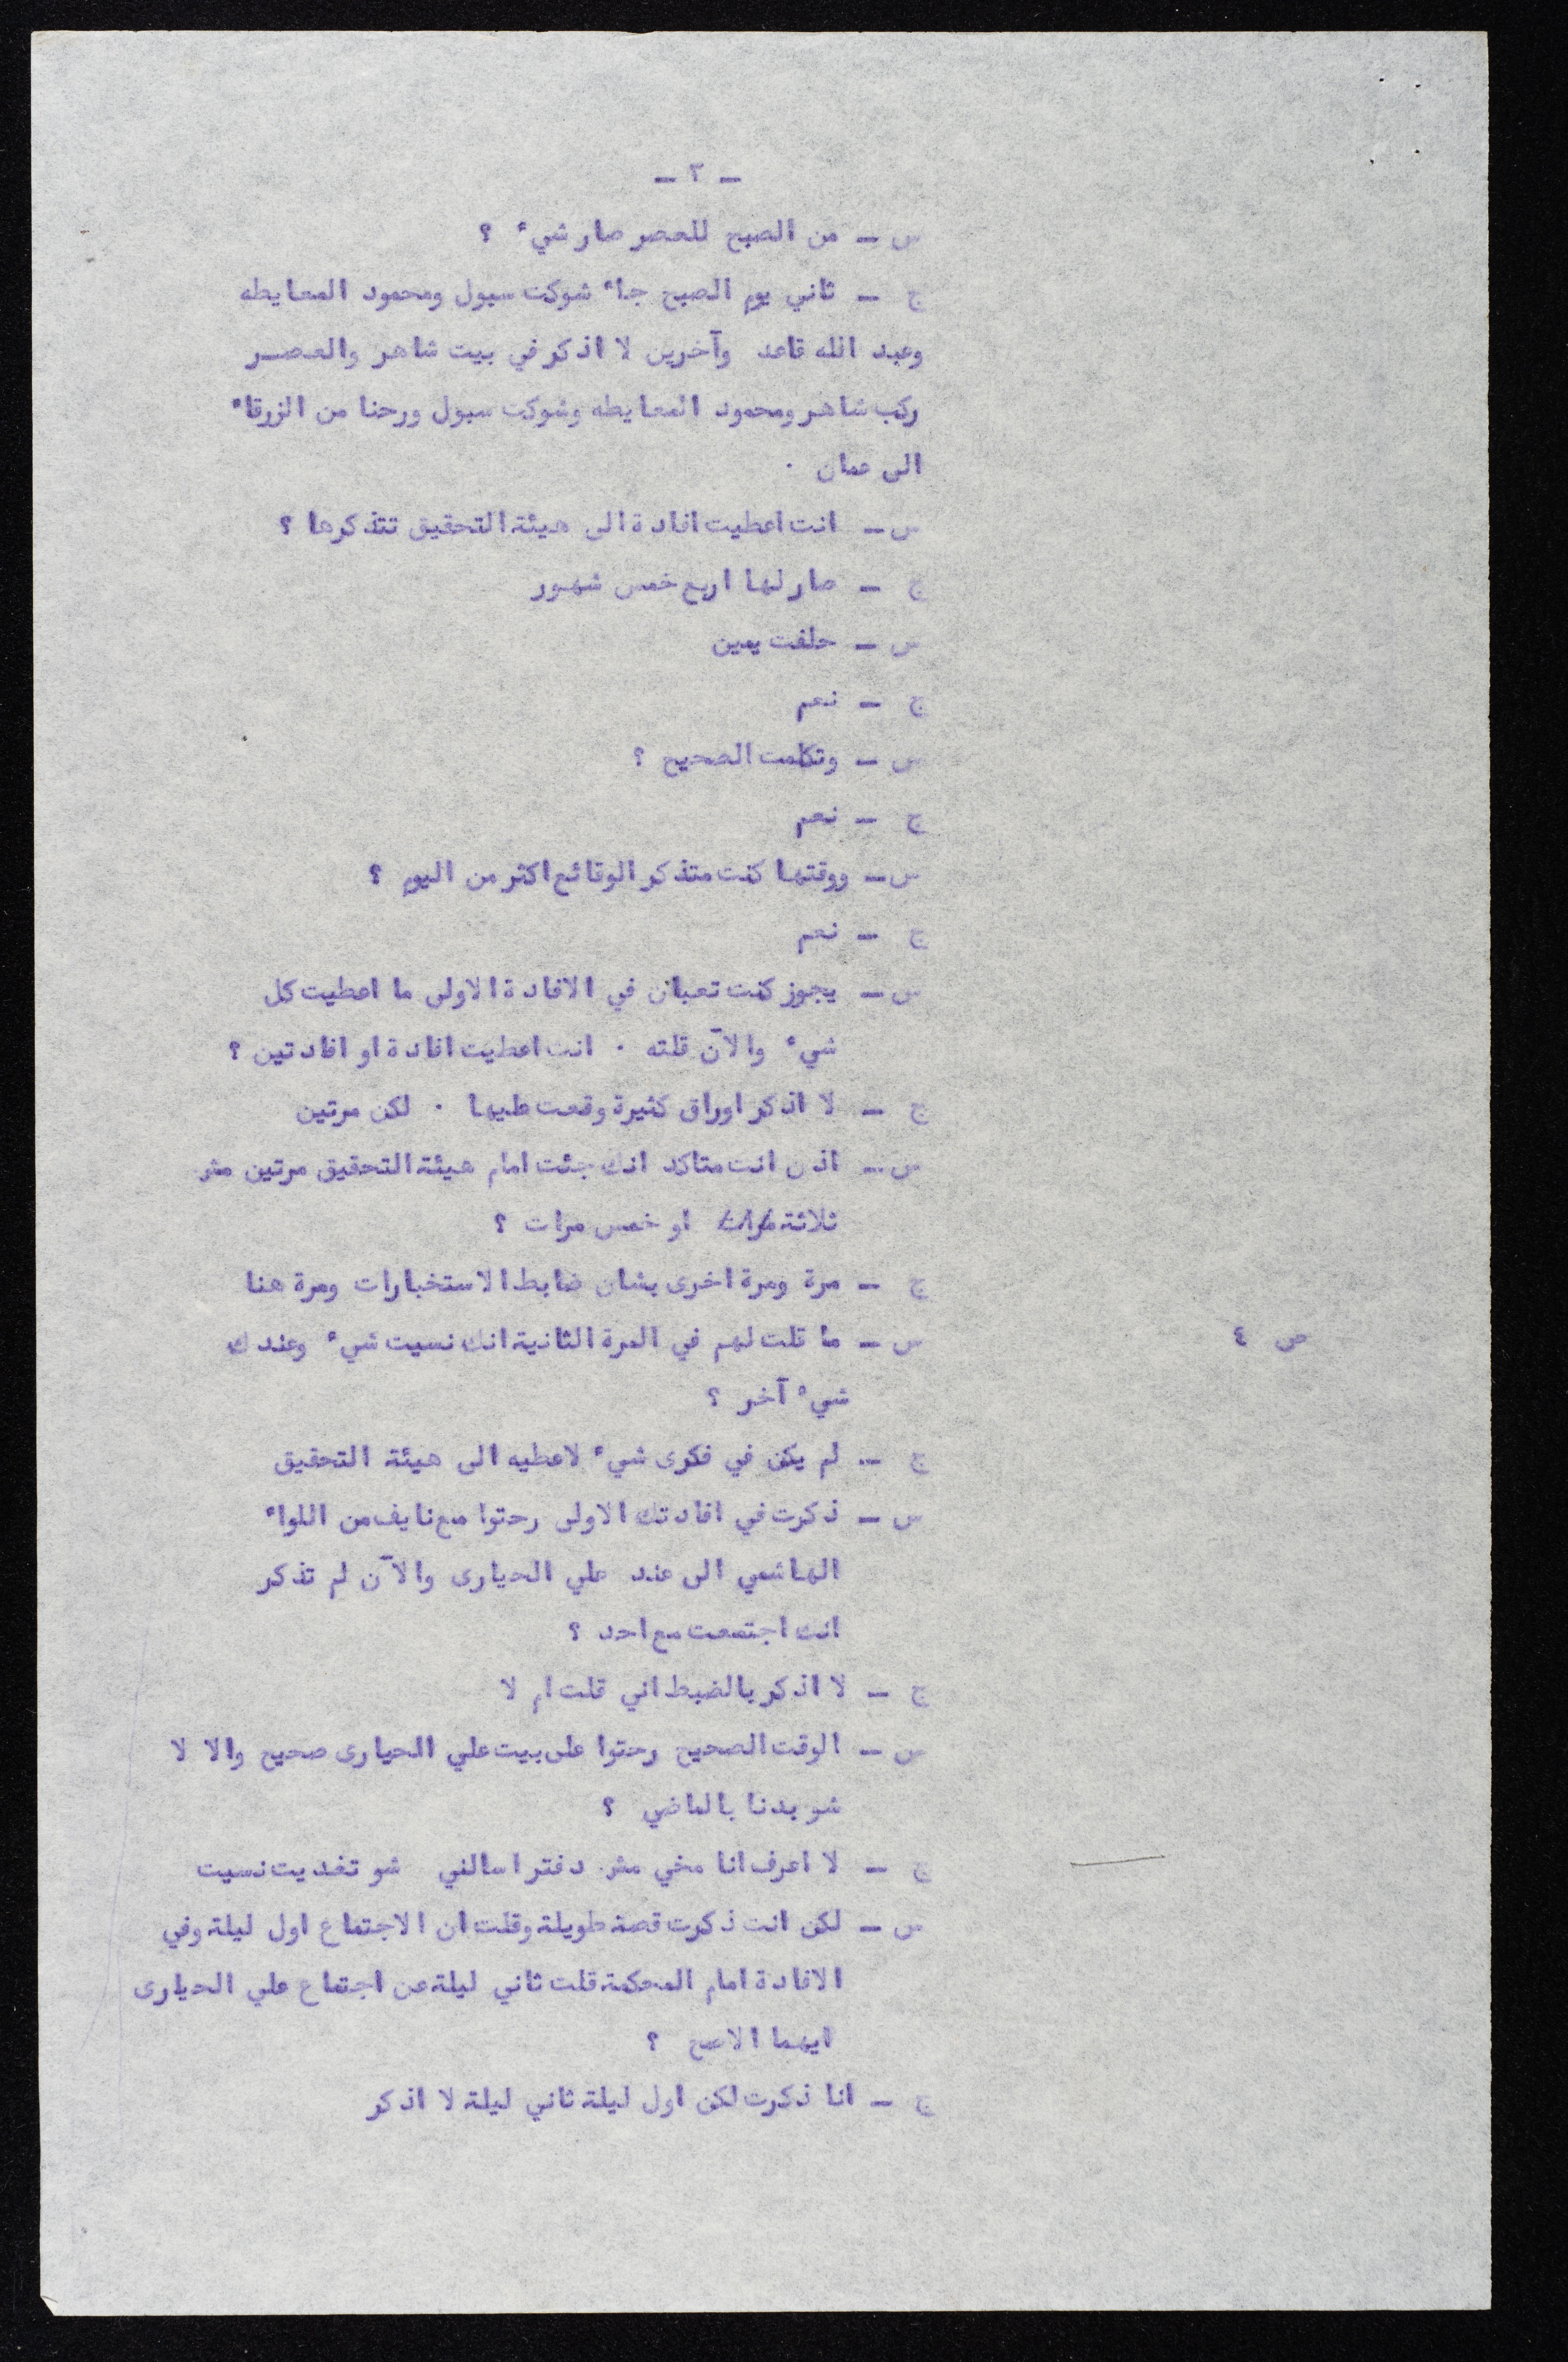 - ٣ -
س - من الصبح للعصر صار شيء ؟
ج - ثاني يوم الصبح جاء شوكت سبول ومحمود المعايطه
وعبد الله قاعد وآخرين لا اذكر في بيت شاهر والعصر
ركب شاهر ومحمود المعايطه وشوكت سبول ورحنا من الزرقاء
الى عمان ٠
س - انت اعطيت افادة الى هيئة التحقيق تتذكرها ؟
ج - صار لها اربع خمس شهور
س - حلفت يمين
ج - نعم
س - وتكلمت الصحيح ؟
ج - نعم
س - ووقتها كنت متذكر الوقائع اكثر من اليوم ؟
ج - نعم
س - يجوز كنت تعبان في الافادة الاولى ما اعطيت كل
شيء والآن قلته ٠ انت اعطيت افادة او افادتين ؟
ج - لا اذكر اوراق كثيرة وقعت عليها ٠ لكن مرتين
س - اذن انت متاكد انك جئت امام هيئة التحقيق مرتين مش
ثلاثة مرات او خمس مرات ؟
ج - مرة ومرة اخرى بشان ضابط الاستخبارات ومرة هنا
ص ٤
س - ما قلت لهم في المرة الثانية انك نسيت شيء وعندك
شيء آخر ؟
ج - لم يكن في فكرى شيء لاعطيه الى هيئة التحقيق
س - ذكرت في افادتك الاولى رحتوا مع نايف من اللواء
الهاشمي الى عند علي الحيارى والآن لم تذكر
انك اجتمعت مع احد ؟
ج - لا اذكر بالضبط اني قلت ام لا
س - الوقت الصحيح رحتوا على بيت علي الحيارى صحيح والا لا
شو بدنا بالماضي ؟
ج - لا اعرف انا مخي مش دفتر اسالني شو تغديت نسيت
س - لكن انت ذكرت قصة طويلة وقلت ان الاجتماع اول ليلة وفي
الافادة امام المحكمة قلت ثاني ليلة عن اجتماع علي الحيارى
ايهما الاصح ؟
ج - انا ذكرت لكن اول ليلة ثاني ليلة لا اذكر